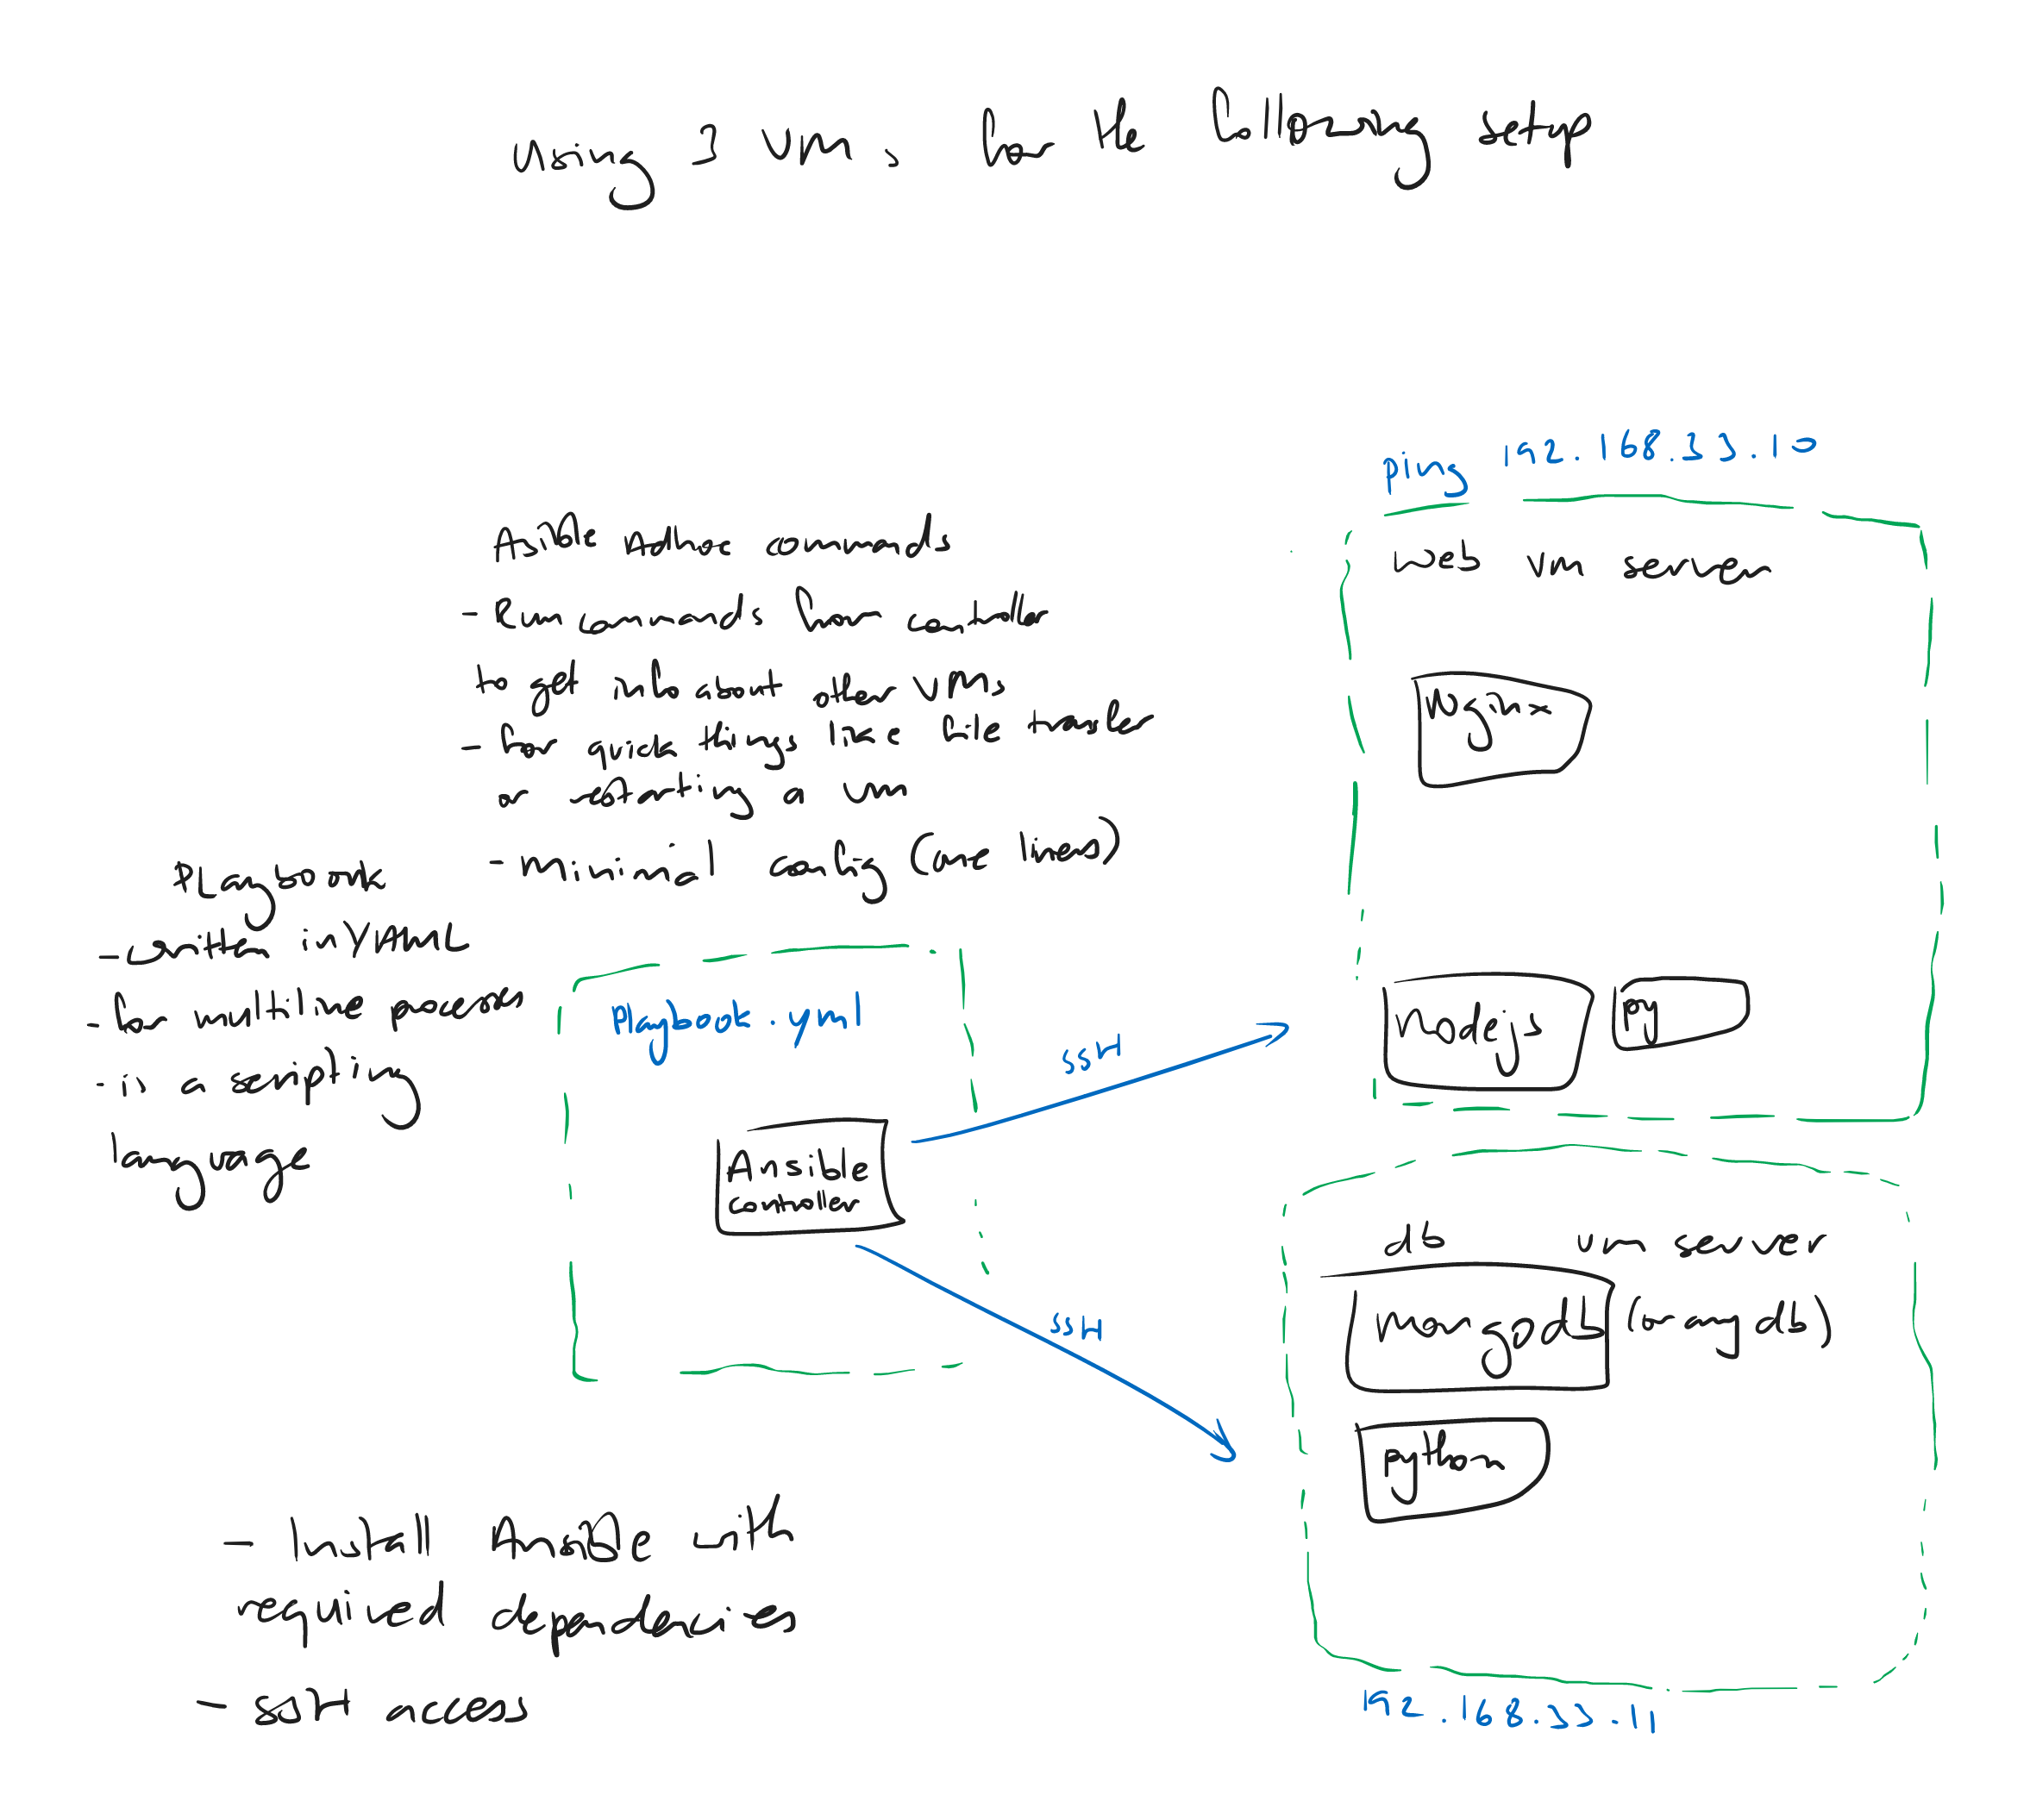 Using 3 VMs for the following setup
ping 192.168.33.10
web vm server
Nginx
nodejs
py
Asible Adhoc commands
- Run commands from controller
to get info about other VMs
- for quick things like file transfer
or restarting a vm
- Minimal config (one liners)
Playbook
- written in YAML
- for multiline processes
- is a scripting
language
Playbook.yml
Ansible
controller
SSH
SSH
db vm server
mongodb (or any db)
python
192.168.33.11
- Install Ansible with
required dependencies
- SSH access